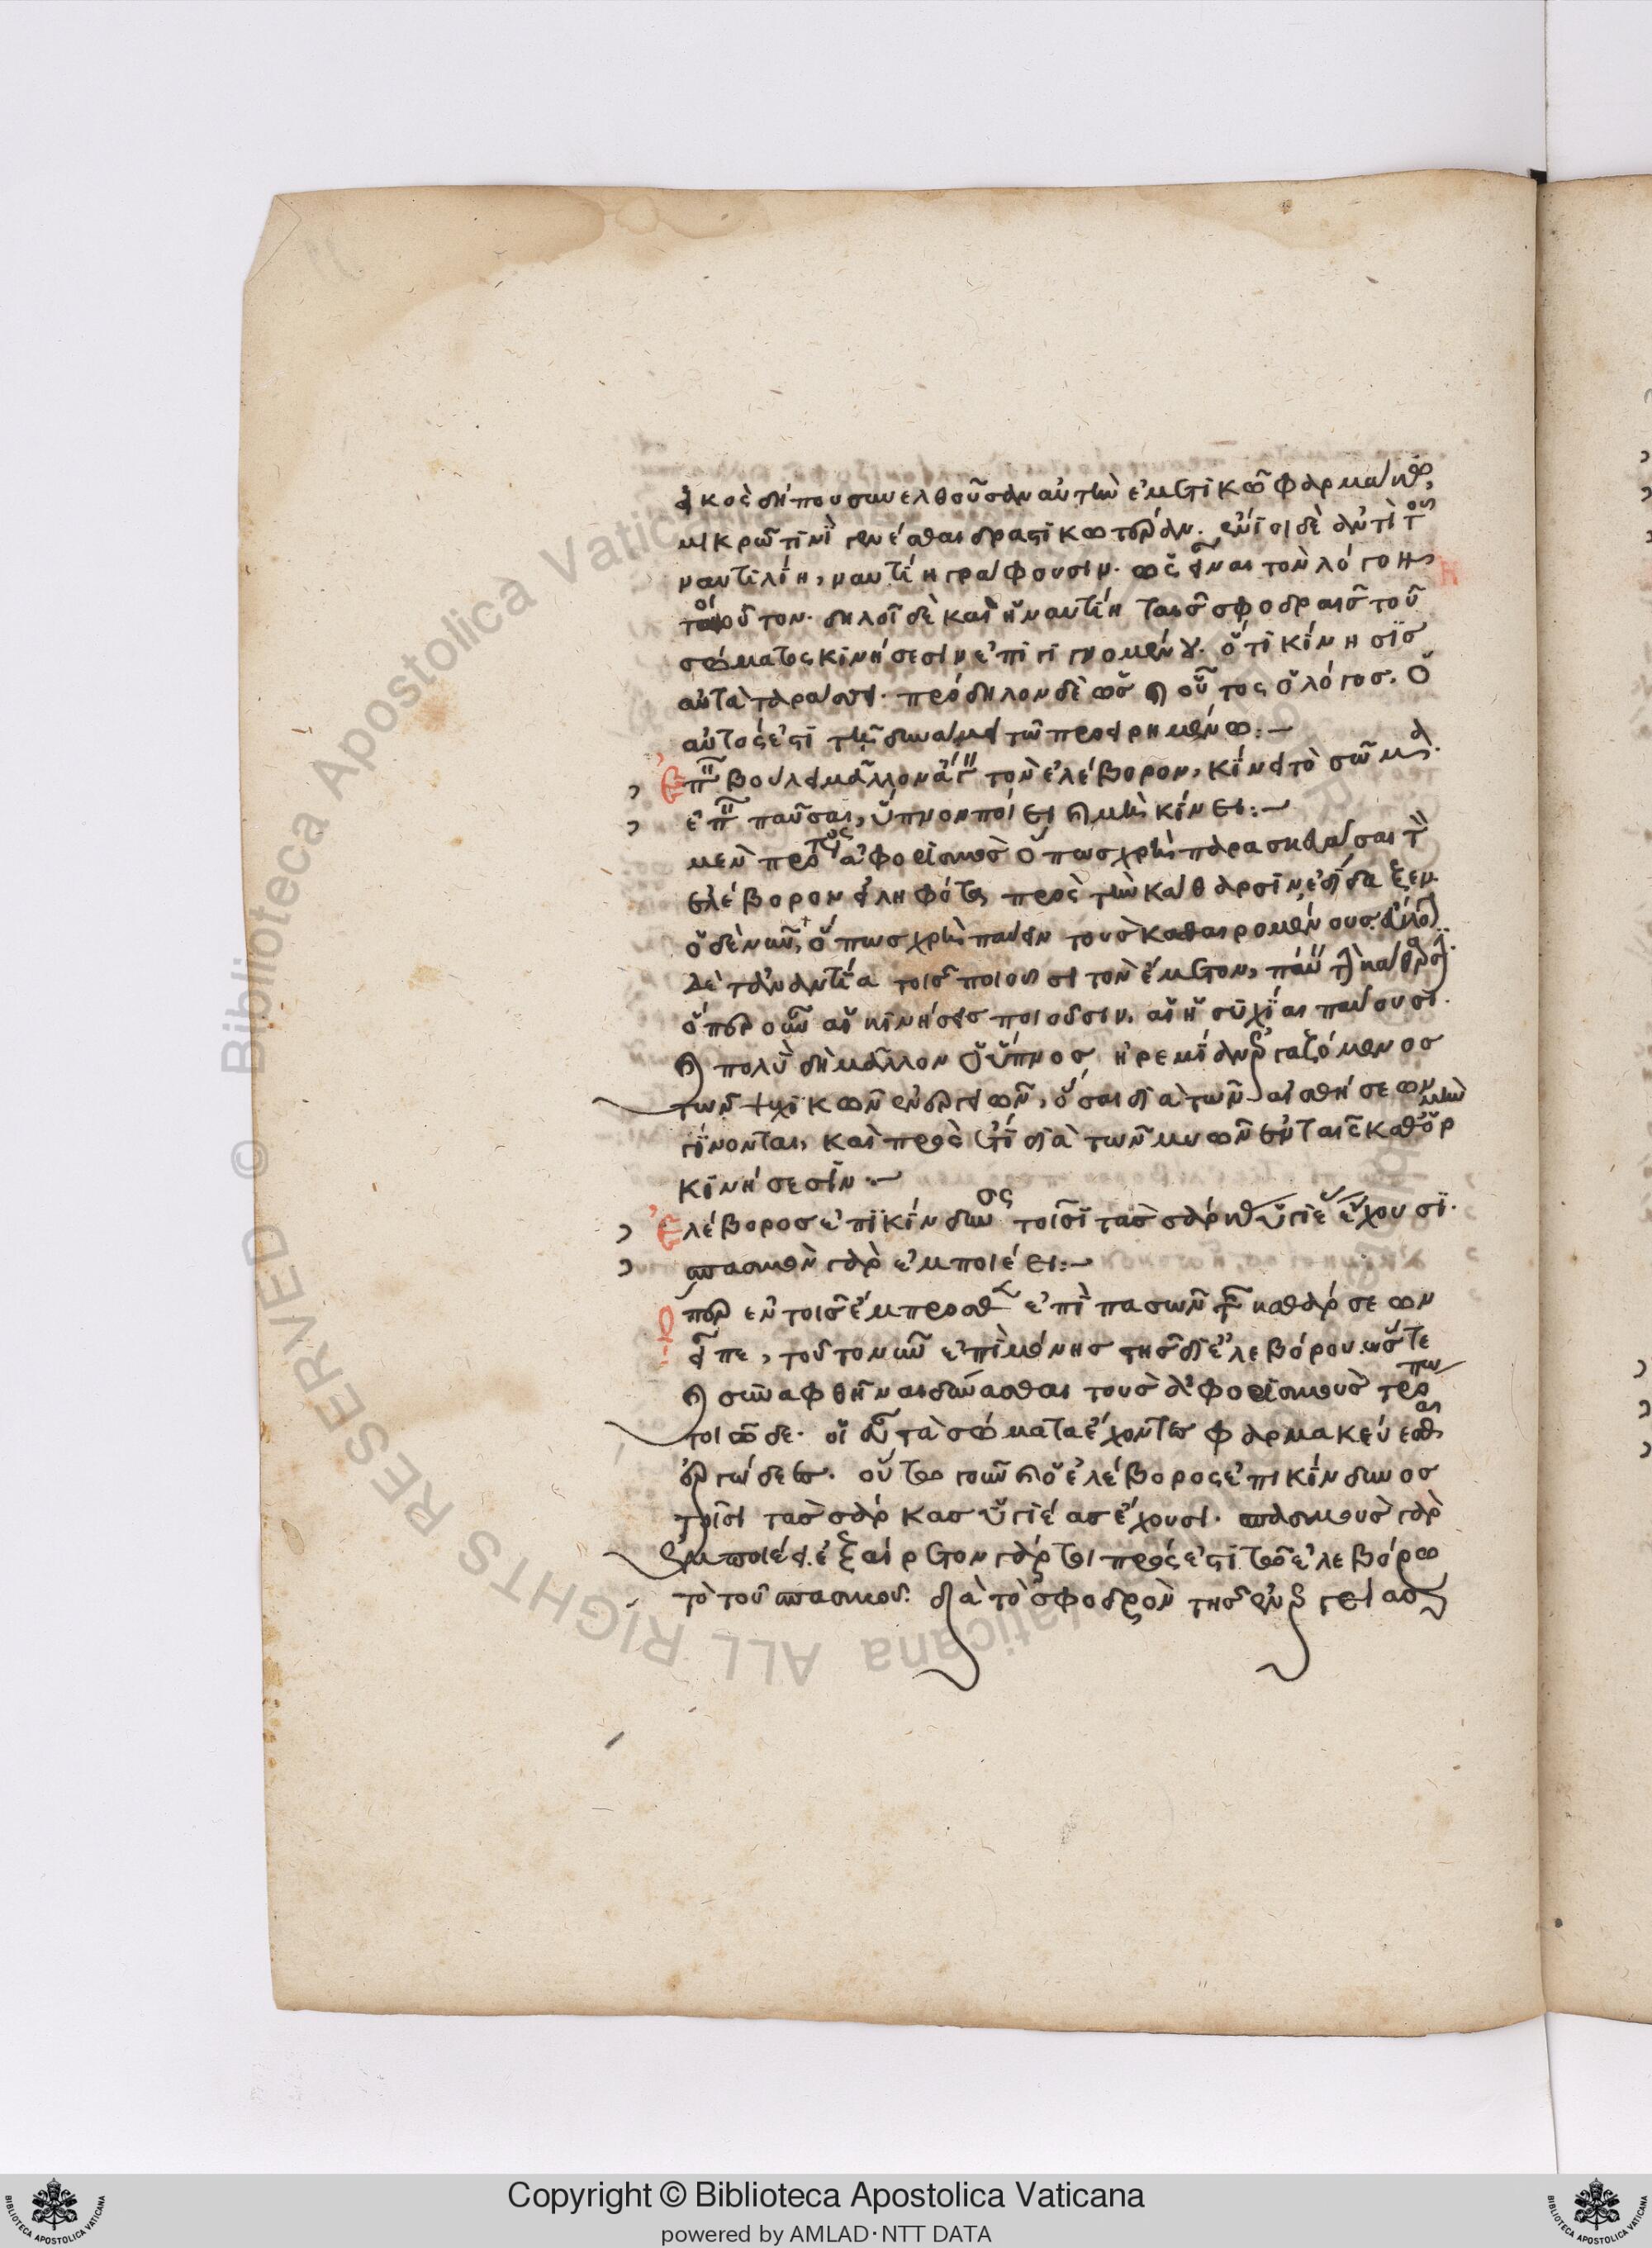 εἰκὸς δήπου συνελθοῦσαν αὐτὴν ἐμετικῶ φαρμάκω,
μικρῶ τινὶ γενέσθαι δραστικωτέραν. ἔνιοι δὲ ἀντὶ τοῦ
ναυτιλίη, ναυτίη γράφουσιν. ὡς εἶναι τὸν λόγον
τοιοῦτον. δηλοῖ δὲ καὶ ἡ ναυτίη ταῖς σφοδραῖς τοῦ
σώματος κινήσεσιν ἐπιγιγνομένη. ὅτι κίνησις
αὐτὰ ταράσσει. πρόδηλον δὲ ὡς καὶ οὗτος ὁ λόγος. ὁ
αὐτός ἐστι τῆ δυνάμει τῶ προειρημένω:
Ἐπὴν βούλει μᾶλλον ἄγειν τὸν ἐλέβορον, κίνει τὸ σῶμα.
ἐπὴν παῦσαι, ὕπνον ποίει καὶ μὴ κίνει:
μὲν πρὸ τούτου ἀφορισμὸς ὅπως χρὴ παρασκευάσαι τὸν
ἐλέβορον εἰληφότα πρὸς τὴν κάθαρσιν, ἐδίδαξεν.
ὁ δὲ νῦν, ὅπως χρὴ παύειν τοὺς καθαιρομένους. δῆλον
δὲ τἀναντία τοῖς ποιοῦσι τὸν ἔμετον, παύει τὴν κάθαρσιν.
ὅπερ οὖν αἱ κινήσεις ποιοῦσιν, αἱ ἡσυχίαι παύουσι.
καὶ πολὺ δὴ μᾶλλον ὁ ὕπνος, ἠρεμίαν ἐργαζόμενος
τῶν ψυχικῶν ἐνεργειῶν, ὅσαι διὰ τῶν αἰσθήσεων
γίνονται, καὶ πρὸς ἔτι διὰ τῶν μυῶν ἐν ταῖς καθ' ὁρμὴν
κινήσεσιν
Ἐλέβορος ἐπικίνδυνος τοῖσι τὰς σάρκας ὑγιέας ἔχουσι.
σπασμὸν γὰρ ἐμποιέει:
Ὅπερ ἐν τοῖς ἔμπροσθεν ἐπὶ πασῶν τῶν καθάρσεων
εἶπε, τοῦτο νῦν ἐπὶ μόνης τῆς δι' ἐλεβόρου. ὥστε
καὶ συναφθῆναι δύνασθαι τοὺς ἀφορισμοὺς τρόπω
τοιῶδε. οἱ εὖ τὰ σώματα ἔχοντες φαρμακεύεσθαι
ἐργώδεις. οὕτω γοῦν καὶ ὁ ἐλέβορος ἐπικίνδυνος
τοῖσι τὰς σάρκας ὑγιέας ἔχουσι. σπασμοὺς γὰρ
ἐμποιέει. ἐξαίρετον γάρ τι πρός ἐστι τῶ ἐλεβόρω
τὸ τοῦ σπασμοῦ. διὰ τὸ σφοδρὸν τῆς ἐνεργείας